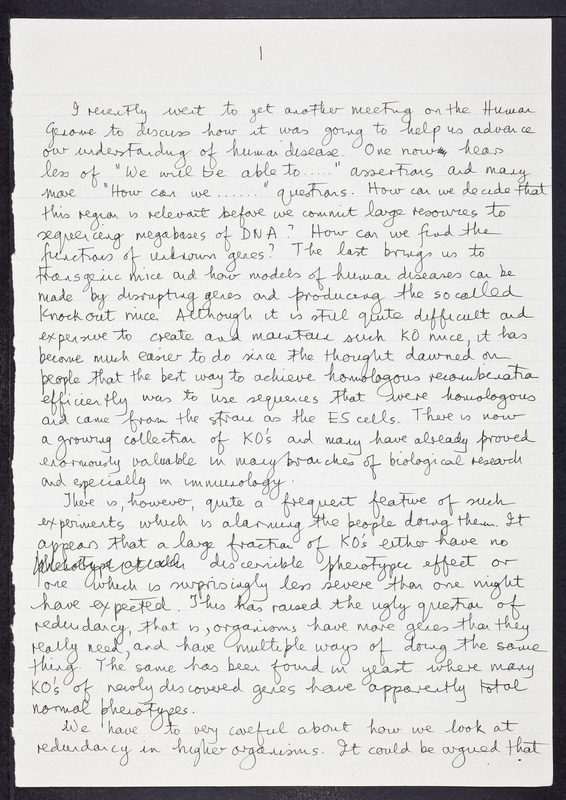 1
I recently went to yet another meeting on the Human
Genome to discuss how it was going to help us advance
our understanding of human disease. One now hears
less of "We will be able to....." assertions and many
more "How can we ......" questions. How can we decide that
this region is relevant before we commit large resources to
sequencing megabases of DNA? How can we find the
functions of unknown genes? The last brings us to
transgenic mice and how models of human diseases can be
made by disrupting genes and producing the so called
Knock out mice. Although it is still quite difficult and
expensive to create and maintain such KO mice, it has
become much easier to do since the thought dawned on
people that the best way to achieve homologous recombination
efficiently was to use sequences that were homologous
and came from the strain as the ES cells. There is now
a growing collection of KO's and many have already proved
enormously valuable in many branches of biological research
and especially in immunology.
There is, however, quite a frequent feature of such
experiments which is alarming the people doing them. It
appears that a large fraction of KO's either have no
discernible phenotypic effect or
one which is surprisingly less severe than one might
have expected. This has raised the ugly question of
redundancy, that is, organisms have more genes than they
really need, and have multiple ways of doing the same
thing. The same has been found in yeast where many
KO's of newly discovered genes have apparently total
normal phenotypes.
We have to very careful about how we look at
redundancy in higher organisms. It could be argued that